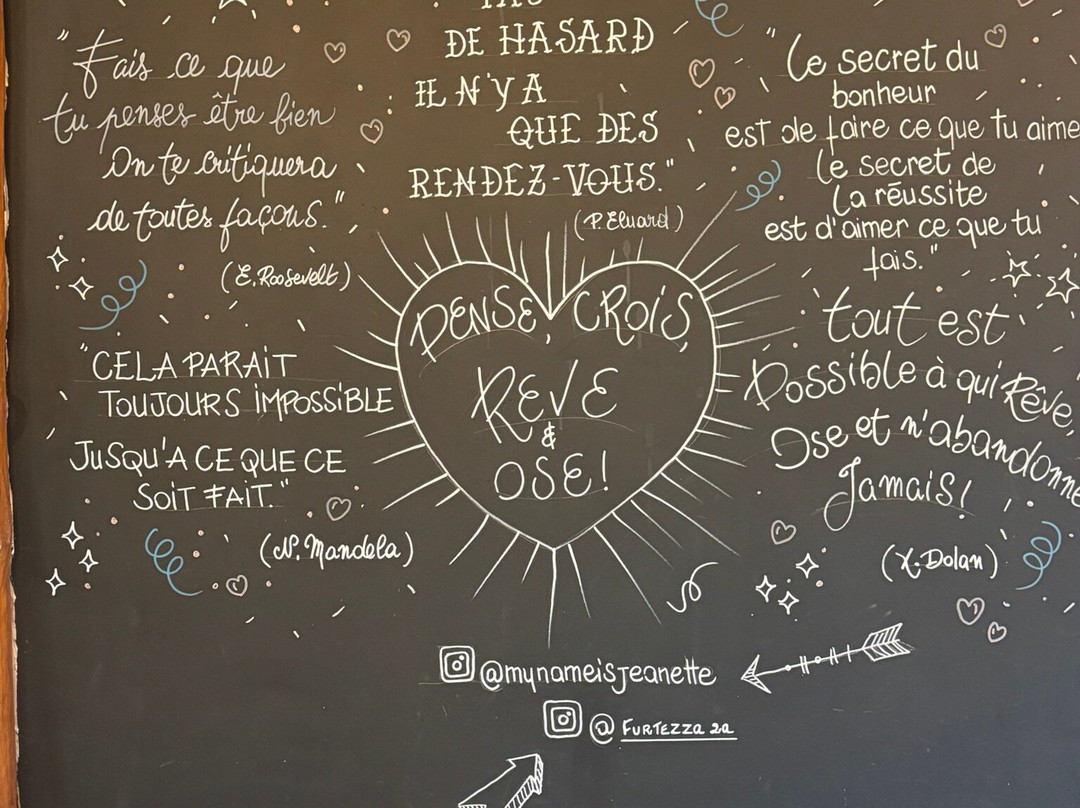 "Fais ce que
tu penses être bien
On te critiquera
de toutes façons."
(E. Roosevelt)
DE HASARD
IL N'Y A
QUE DES
RENDEZ-VOUS."
(P. Eluard)
"Le secret du
bonheur
est de faire ce que tu aime
Le secret de
la réussite
est d'aimer ce que tu
fais."
"CELA PARAIT
TOUJOURS IMPOSSIBLE
JUSQU'A CE QUE CE
SOIT FAIT."
(N. Mandela)
PENSE, CROIS,
REVE
&
OSE!
tout est
Possible à qui Rêve,
Ose et n'abandonne
Jamais!
(X. Dolan)
@mynameisjeanette
@FURTEZZA 2a